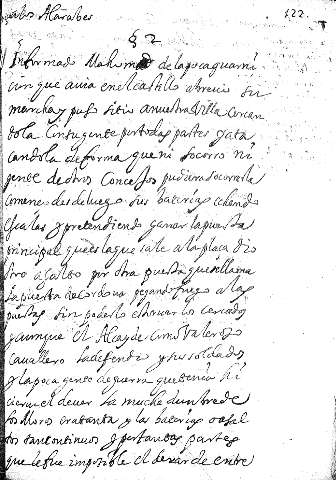 los Alarabes
122.
§ 2
Informado Mahomad de la poca guarni
cion que avia en el castillo abrevio su
marcha y puso sitio a nuestra Villa cercan
dola con su gente por todas partes y ata
candola de forma que ni socorro ni
gente de otros Concejos pudiera socorrerla
comenso desde luego sus baterias echando
escalas y pretendiendo ganar la puerta
principal que es la que sale a la plaza dio
otro asalto por otra puerta que se llama
la puerta de Cordova pegando fuego a las
puertas sin poderlo estorvar los cercados
y aunque el Alcayde como valeroso
Cavallero la defendia y sus soldados
y la poca gente de guerra que tenia hi
cieron el dever la muchedumbre de
los Moros era tanta y las baterias
tan continuas y por tantas partes
que le fue imposible el dexar de entre